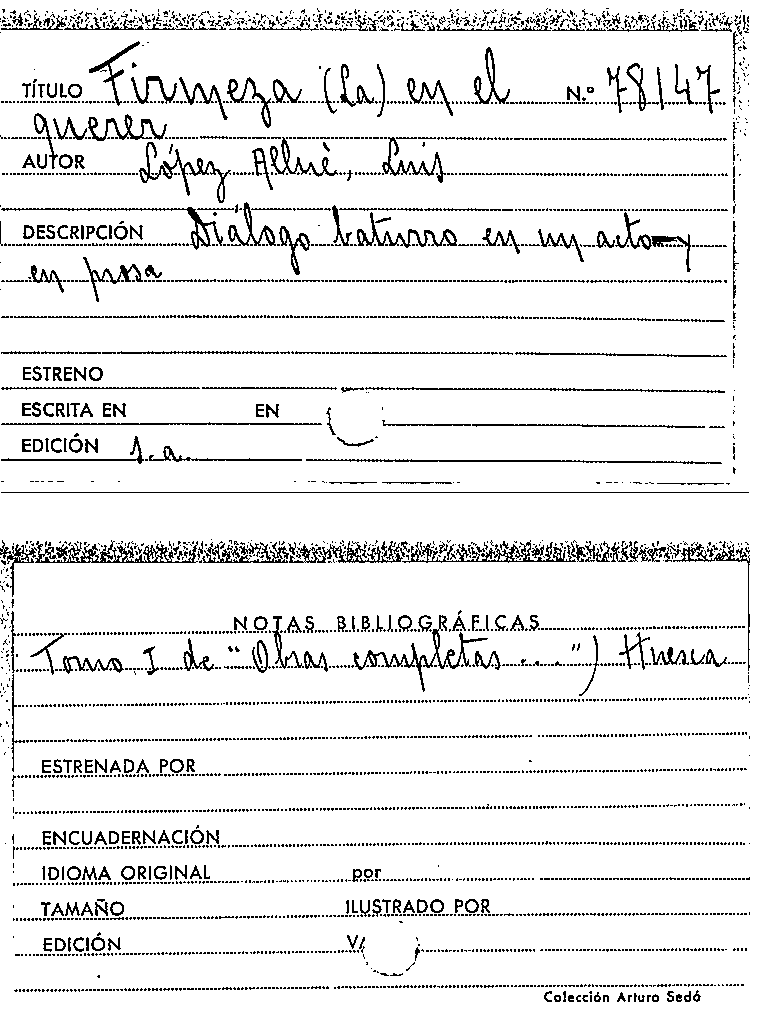 TÍTULO Firmeza (La) en el N.º 78147
querer
AUTOR López Allué, Luis
DESCRIPCIÓN Diálogo baturro en un acto y
en prosa
ESTRENO
ESCRITA EN EN
EDICIÓN s.a.
NOTAS BIBLIOGRÁFICAS
Tomo I de "Obras completas ...") Huesca
ESTRENADA POR
ENCUADERNACIÓN
IDIOMA ORIGINAL por
TAMAÑO ILUSTRADO POR
EDICIÓN V/
Colección Arturo Sedó